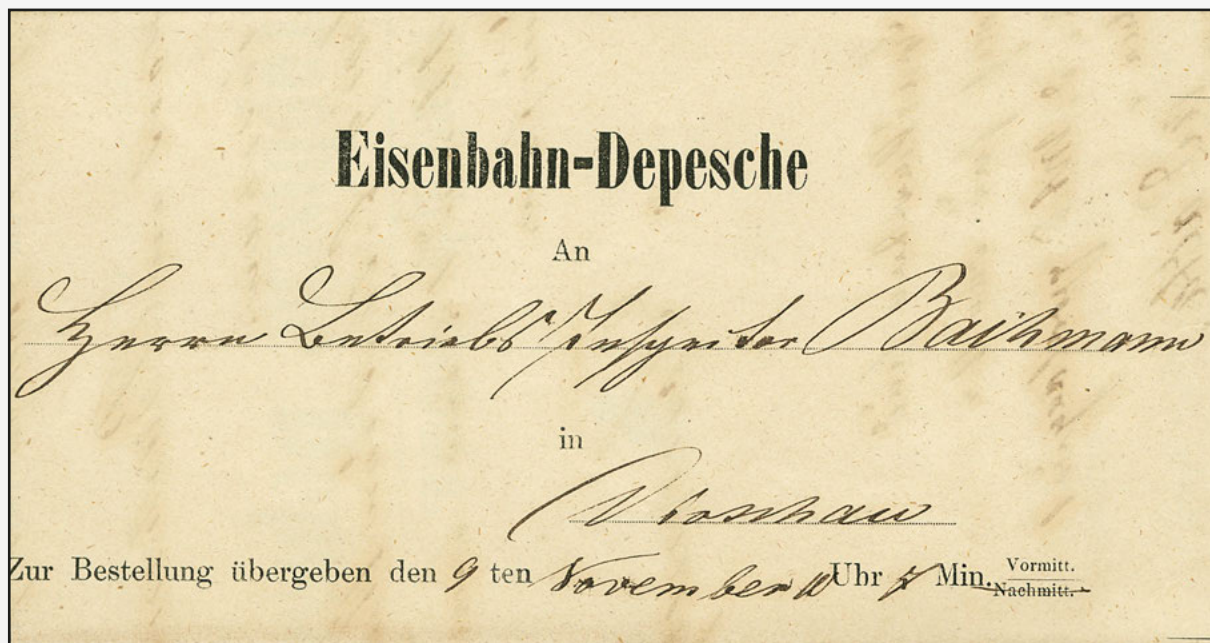 Eisenbahn-Depesche
An
Herrn Betriebs Inspector Bachmann
in
Zur Bestellung übergeben den 9 ten November 10 Uhr 7 Min. Vormitt.
Nachmitt.